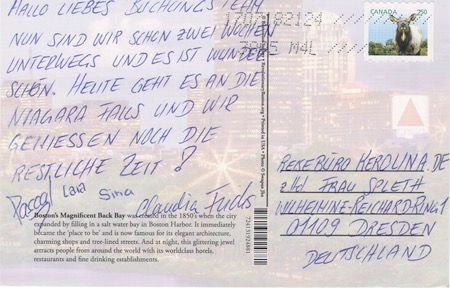 HALLO LIEBES BUCHUNGSTEAM
NUN SIND WIR SCHON ZWEI WOCHEN
UNTERWEGS UND ES IST WUNDER
SCHÖN. HEUTE GEHT ES AN DIE
NIAGARA FALLS UND WIR
GENIESSEN NOCH DIE
RESTLICHE ZEIT!
Pascal Lara Sina Claudia Fuchs
Boston's Magnificent Back Bay was created in the 1850's when the city
expanded by filling in a salt water bay in Boston Harbor. It immediately
became the 'place to be' and is now famous for its elegant architecture,
charming shops and tree-lined streets. And at night, this glittering jewel
attracts people from around the world with its worldclass hotels,
restaurants and fine drinking establishments.
Printed in USA
72413192488
CANADA 250
M4L
REISEBÜRO KEROLINA.DE
z.Hd FRAU SPLETH
WILHELMINE-REICHARD RING 1
01109 DRESDEN
DEUTSCHLAND